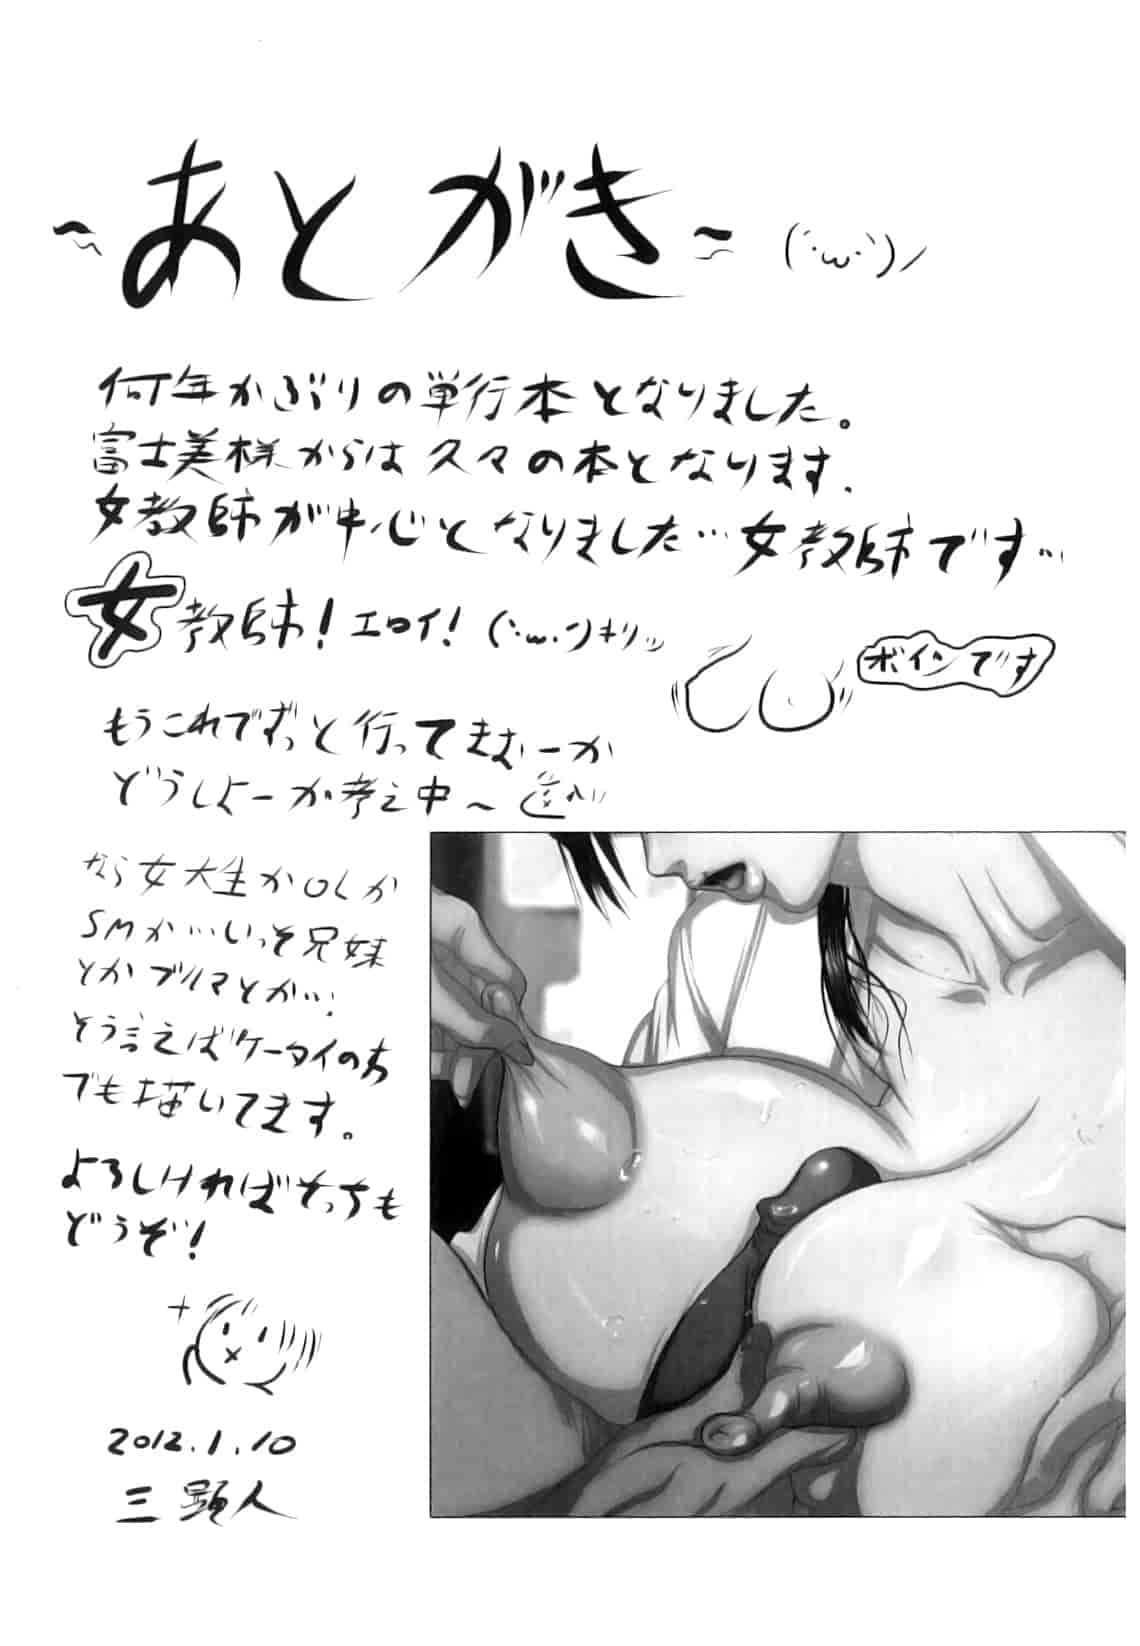 ~あとがき~ (´・ω・`)ノ
何年かぶりの単行本となりました。
富士美様からは久々の本となります.
女教師が中心となりました…女教師です…
女教師!エロイ!(`・ω・´)キリッ
ボインです
もうこれでずっと行ってまおーか
どうしよーか考え中~
なら女大生かOLか
SMか…いっそ兄妹
とかブルマとか…!
そう言えばケータイの方
でも描いてます。
よろしければそっちも
どうぞ!
2012.1.10
三顕人